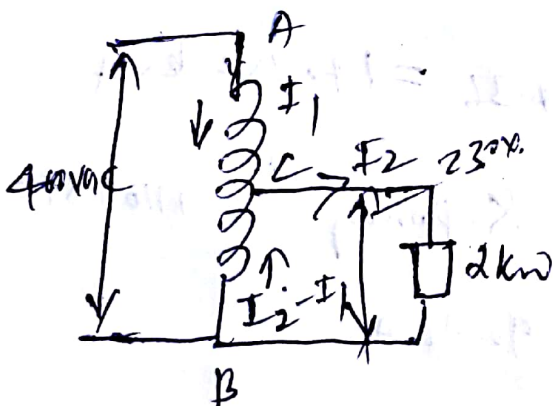 A
I1
400VAC
C I2 230V.
2kw
I2-I1
B